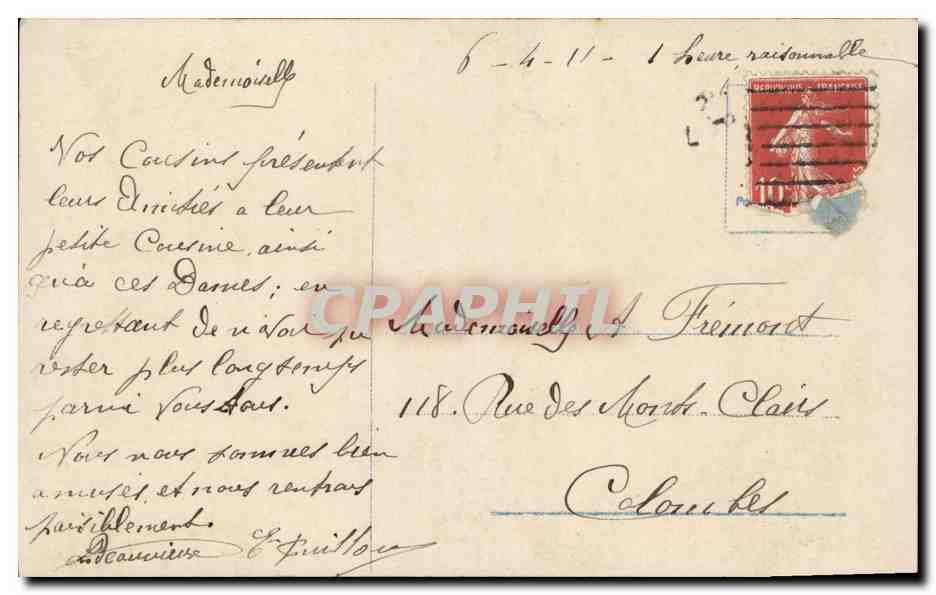 6 - 4 - 11 - 1 heure raisonnable
Mademoiselle
REPUBLIQUE FRANCAISE
10
Vos Cousins présentent
leurs Amitiés a leur
petite Cousine, ainsi
qu'a ces Dames; en
regrettant de n'avoir pu
rester plus longtemps
parmi Vous tous.
Nous nous sommes bien
amusés, et nous rentrons
paisiblement.
E Quillou
Mademoiselle A Frémont
118. Rue des Monts-Clairs
Colombes
CPAPHIL